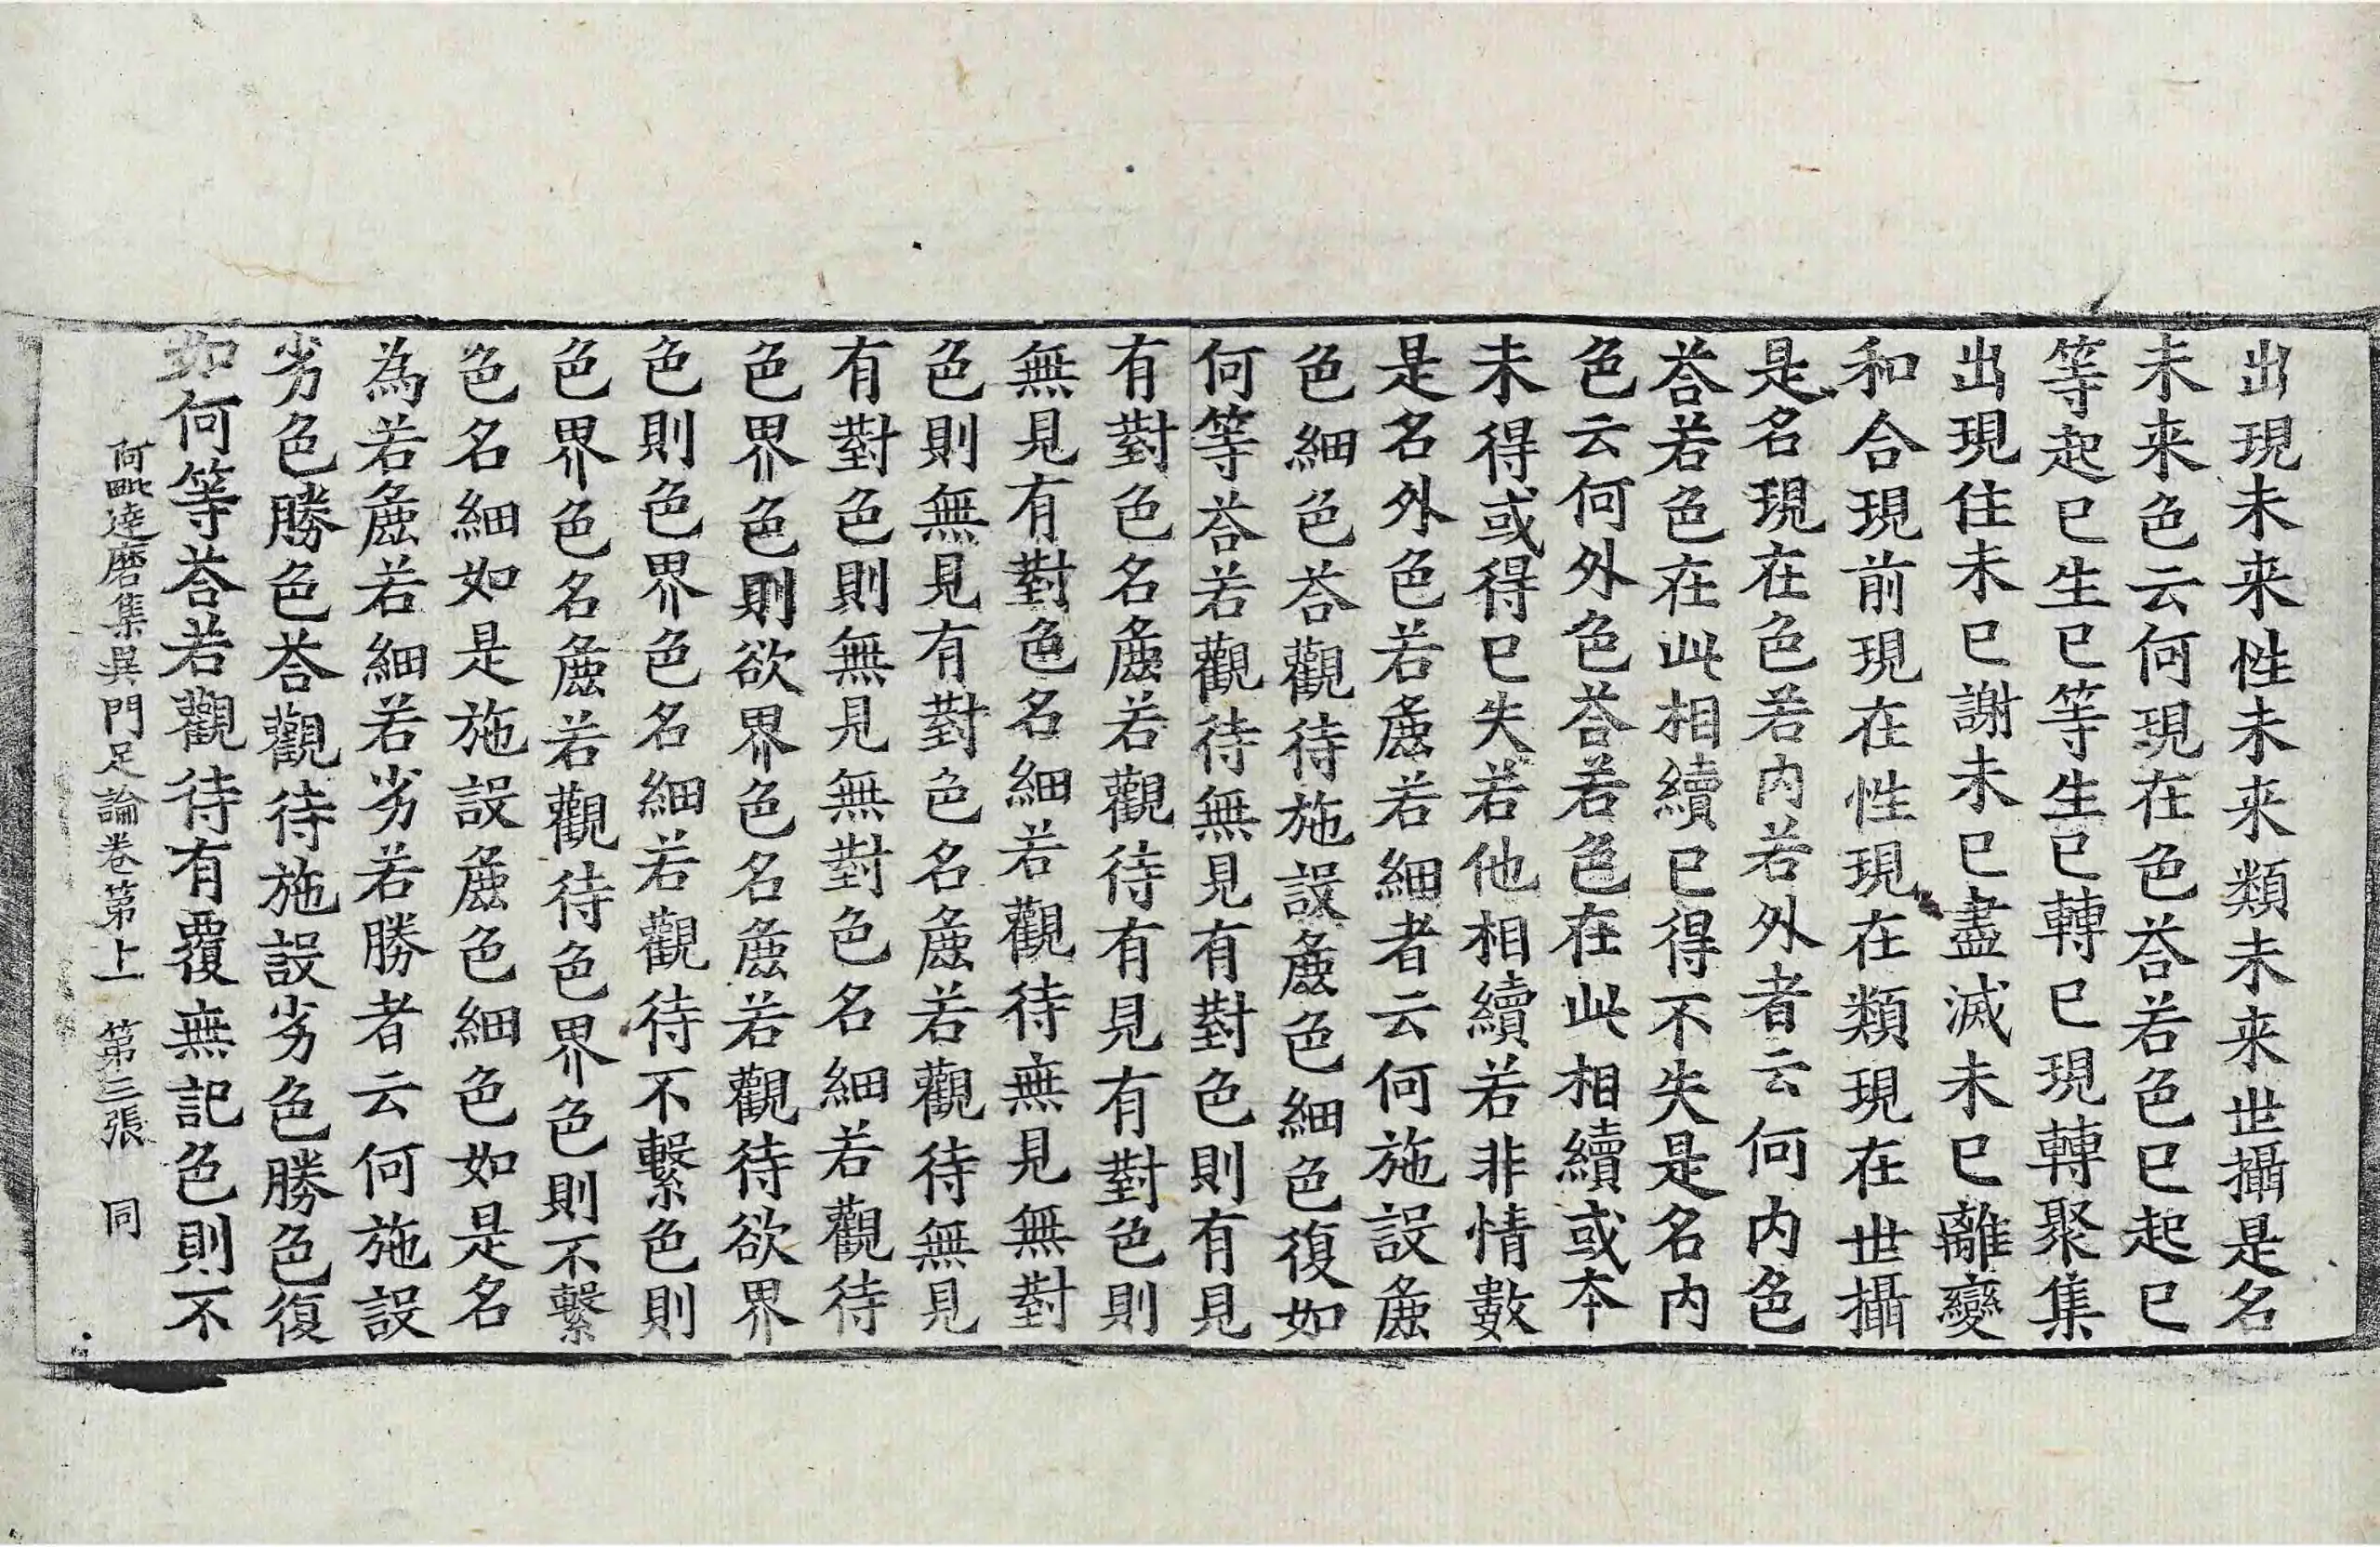 出現未来性未来類未来世攝是名
未来色云何現在色荅若色已起已
等起已生已等生已轉已現轉聚集
出現住未已謝未已盡滅未已離變
和合現前現在性現在類現在世攝
是名現在色若内若外者云何内色
荅若色在此相續已得不失是名内
色云何外色荅若色在此相續或本
未得或得已失若他相續若非情數
是名外色若麁若細者云何施設麁
色細色荅觀待施設麁色細色復如
何等荅若觀待無見有對色則有見
有對色名麁若觀待有見有對色則
無見有對色名細若觀待無見無對
色則無見有對色名麁若觀待無見
有對色則無見無對色名細若觀待
色界色則欲界色名麁若觀待欲界
色則色界色名細若觀待不繫色則
色界色名麁若觀待色界色則不繫
色名細如是施設麁色細色如是名
為若麁若細若劣若勝者云何施設
劣色勝色荅觀待施設劣色勝色復
如何等荅若觀待有覆無記色則不
阿毗達磨集異門足論卷第上 第三張 同